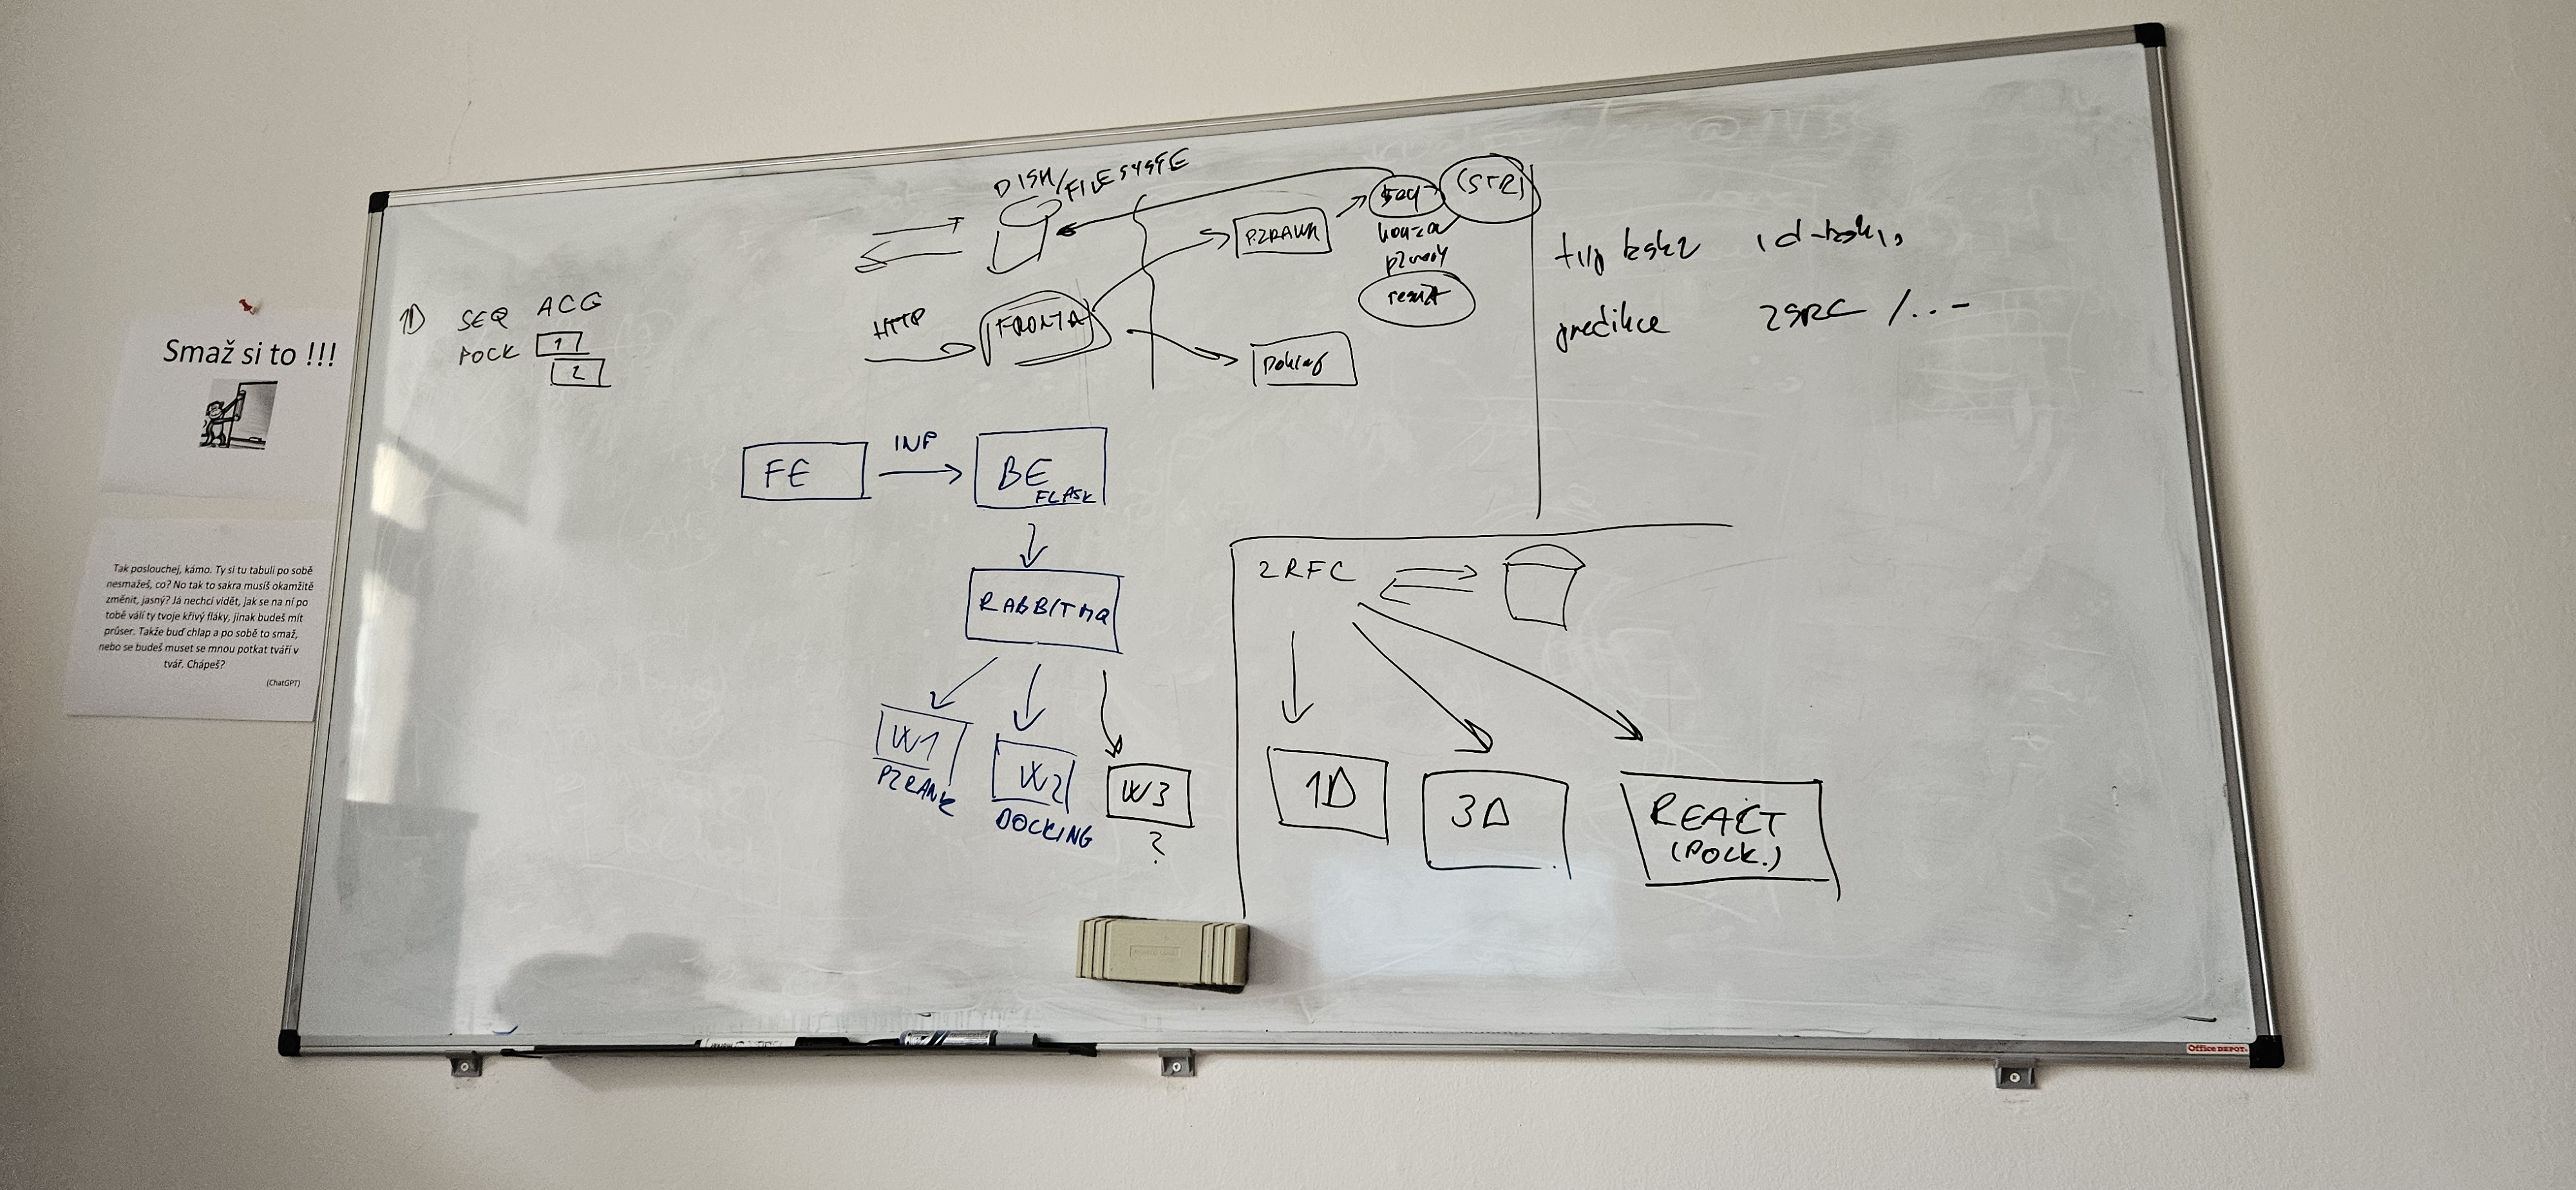 Smaž si to !!!
Tak poslouchej, kámo. Ty si tu tabuli po sobě
nesmažeš, co? No tak to sakra musíš okamžitě
změnit, jasný? Já nechci vidět, jak se na ní po
tobě válí ty tvoje křivý fláky, jinak budeš mít
průser. Takže buď chlap a po sobě to smaž,
nebo se budeš muset se mnou potkat tváří v
tvář. Chápeš?
(ChatGPT)
1D SEQ ACG
POCK 1
2
DISK/FILESYSTE
HTTP
FRONTA
P2RANK
(STR)
result
typ
predikce 2SRC /...
FE
INP
BE
FLASK
RABBITMQ
W1
P2RANK
W2
DOCKING
W3
?
2RFC
1D
3D
REACT
(POCK.)
Office DEPOT